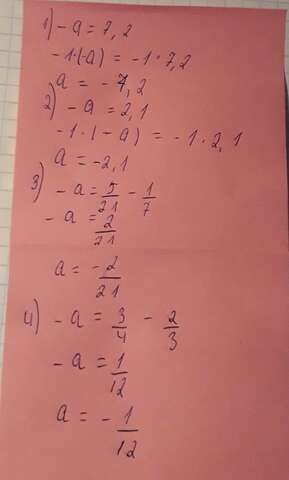 1) -a = 7,2
-1·(-a) = -1·7,2
a = -7,2
2) -a = 2,1
-1·(-a) = -1·2,1
a = -2,1
3) -a = 5/21 - 1/7
-a = 2/21
a = -2/21
4) -a = 3/4 - 2/3
-a = 1/12
a = -1/12